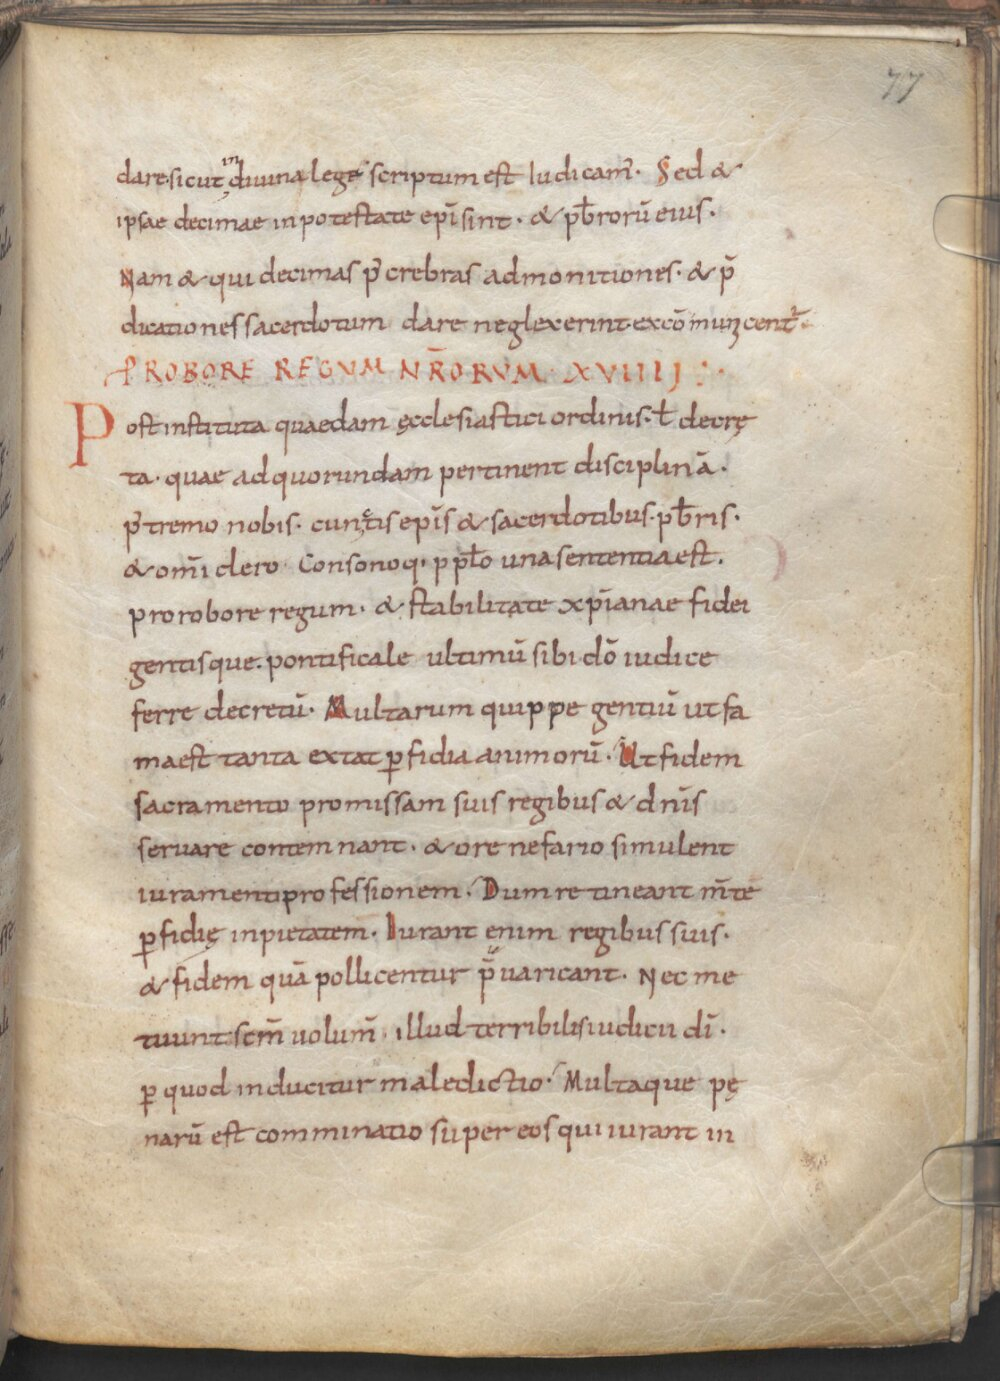 77
dare sicut in diuina lege scriptum est Iudicam̄. Sed &
ipsae decimae in potestate ep̄i sint. & pb̄rorū eius.
Nam & qui decimas p̄ crebras admonitiones. & p̄
dicationes sacerdotum dare neglexerint excō municent᷑.
PRO ROBORE REGUM NR̄ORUM. XVIIII
Post instituta quaedam ęcclesiastici ordinis. ł decrę
ta. quae ad quorundam pertinent disciplinā.
p̄tremo nobis. cunctis ep̄is & sacerdotibus. pb̄ris.
& om̄i clero Consonoq. p ppło una sententia est.
pro robore regum. & stabilitate xp̄ianae fidei
gentisque. pontificale ultimū sibi dō iudice
ferre decretū. Multarum quippe gentiū ut fa
ma est tanta extat ꝑfidia animorū. Ut fidem
sacramento promissam suis regibus & dn̄is
seruare contemnant. & ore nefario simulent
iuramenti professionem. Dum retineant m̄te
ꝑfidię inpietatem. Iurant enim regibus suis.
& fidem quā pollicentur p̄uaricant. Nec me
tuunt scm̄ uolum̄. illud terribilis iudicii dī.
ꝑ quod inducitur maledictio. Multaque pę
narū est comminatio super eos qui iurant in